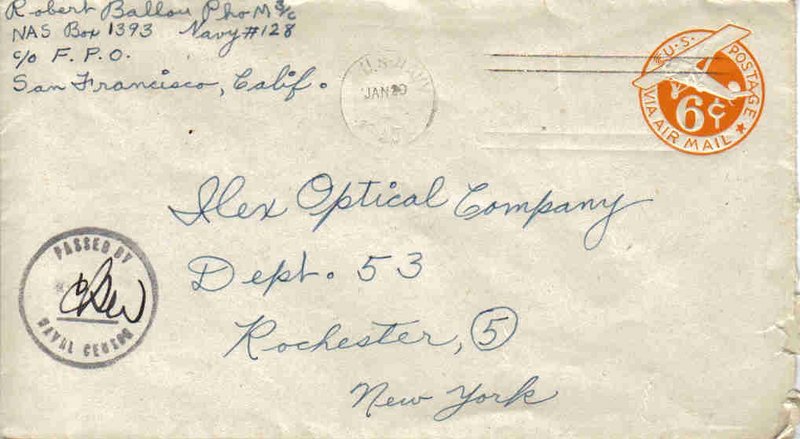 Robert Ballou Pho M 3/c
NAS Box 1393 Navy #128
c/o F. P. O.
San Francisco, Calif.
U.S. NAVY
JAN 29
U.S. POSTAGE
6¢
VIA AIR MAIL
Ilex Optical Company
Dept. 53
Rochester, 5
New York
PASSED BY
NAVAL CENSOR